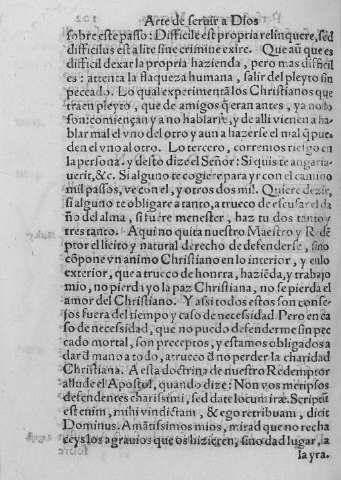 Arte de seruir a Dios
sobre este passo: Difficile est propria relinquere, sed
difficilius est a lite sine crimine exire. Que aũ que es
difficil dexar la propria hazienda, pero mas difficil
es: attenta la flaqueza humana, salir del pleyto sin
peccado. Lo qual experimentã los Christianos que
traen pleyto, que de amigos q̃ eran antes, ya no lo
son: comiençan y a no hablarse, y de alli vienen a ha
blar mal el vno del otro y aun a hazerse el mal q̃ pue
den el vno al otro. Lo tercero, corremos riesgo en
la persona. y desto dize el Señor: Si quis te angaria
uerit, &c. Si alguno te cogiere para yr con el camino
mil passos, ve con el, y otros dos mil. Quiere dezir,
si alguno te obligare a tanto, a trueco de escusar el da
ño del alma, si fuere menester, haz tu dos tanto y
tres tanto. Aqui no quita nuestro Maestro y Redẽ
ptor el licito y natural derecho de defenderse, sino
cõpone vn animo Christiano en lo interior, y en lo
exterior, que a trueco de honrra, haziẽda, y trabajo
mio, no pierda yo la paz Christiana, no se pierda el
amor del Christiano. Y assi todos estos son conse-
jos fuera del tiempo y caso de necessidad Pero en ca
so de necessidad, que no puedo defenderme sin pec
cado mortal, son preceptos, y estamos obligados a
dar d̃ mano a todo, a trueco d̃ no perder la charidad
Christiana. A esta doctrina de nuestro Redemptor
allude el Apostol, quando dize: Non vos metipsos
defendentes charissimi, sed date locum iræ. Scriptũ
est enim, mihi vindictam, & ego retribuam, dicit
Dominus. Amãtissimos mios, mirad que no recha
ceys los agrauios que os hizieren, sino dad lugar, a
la yra.